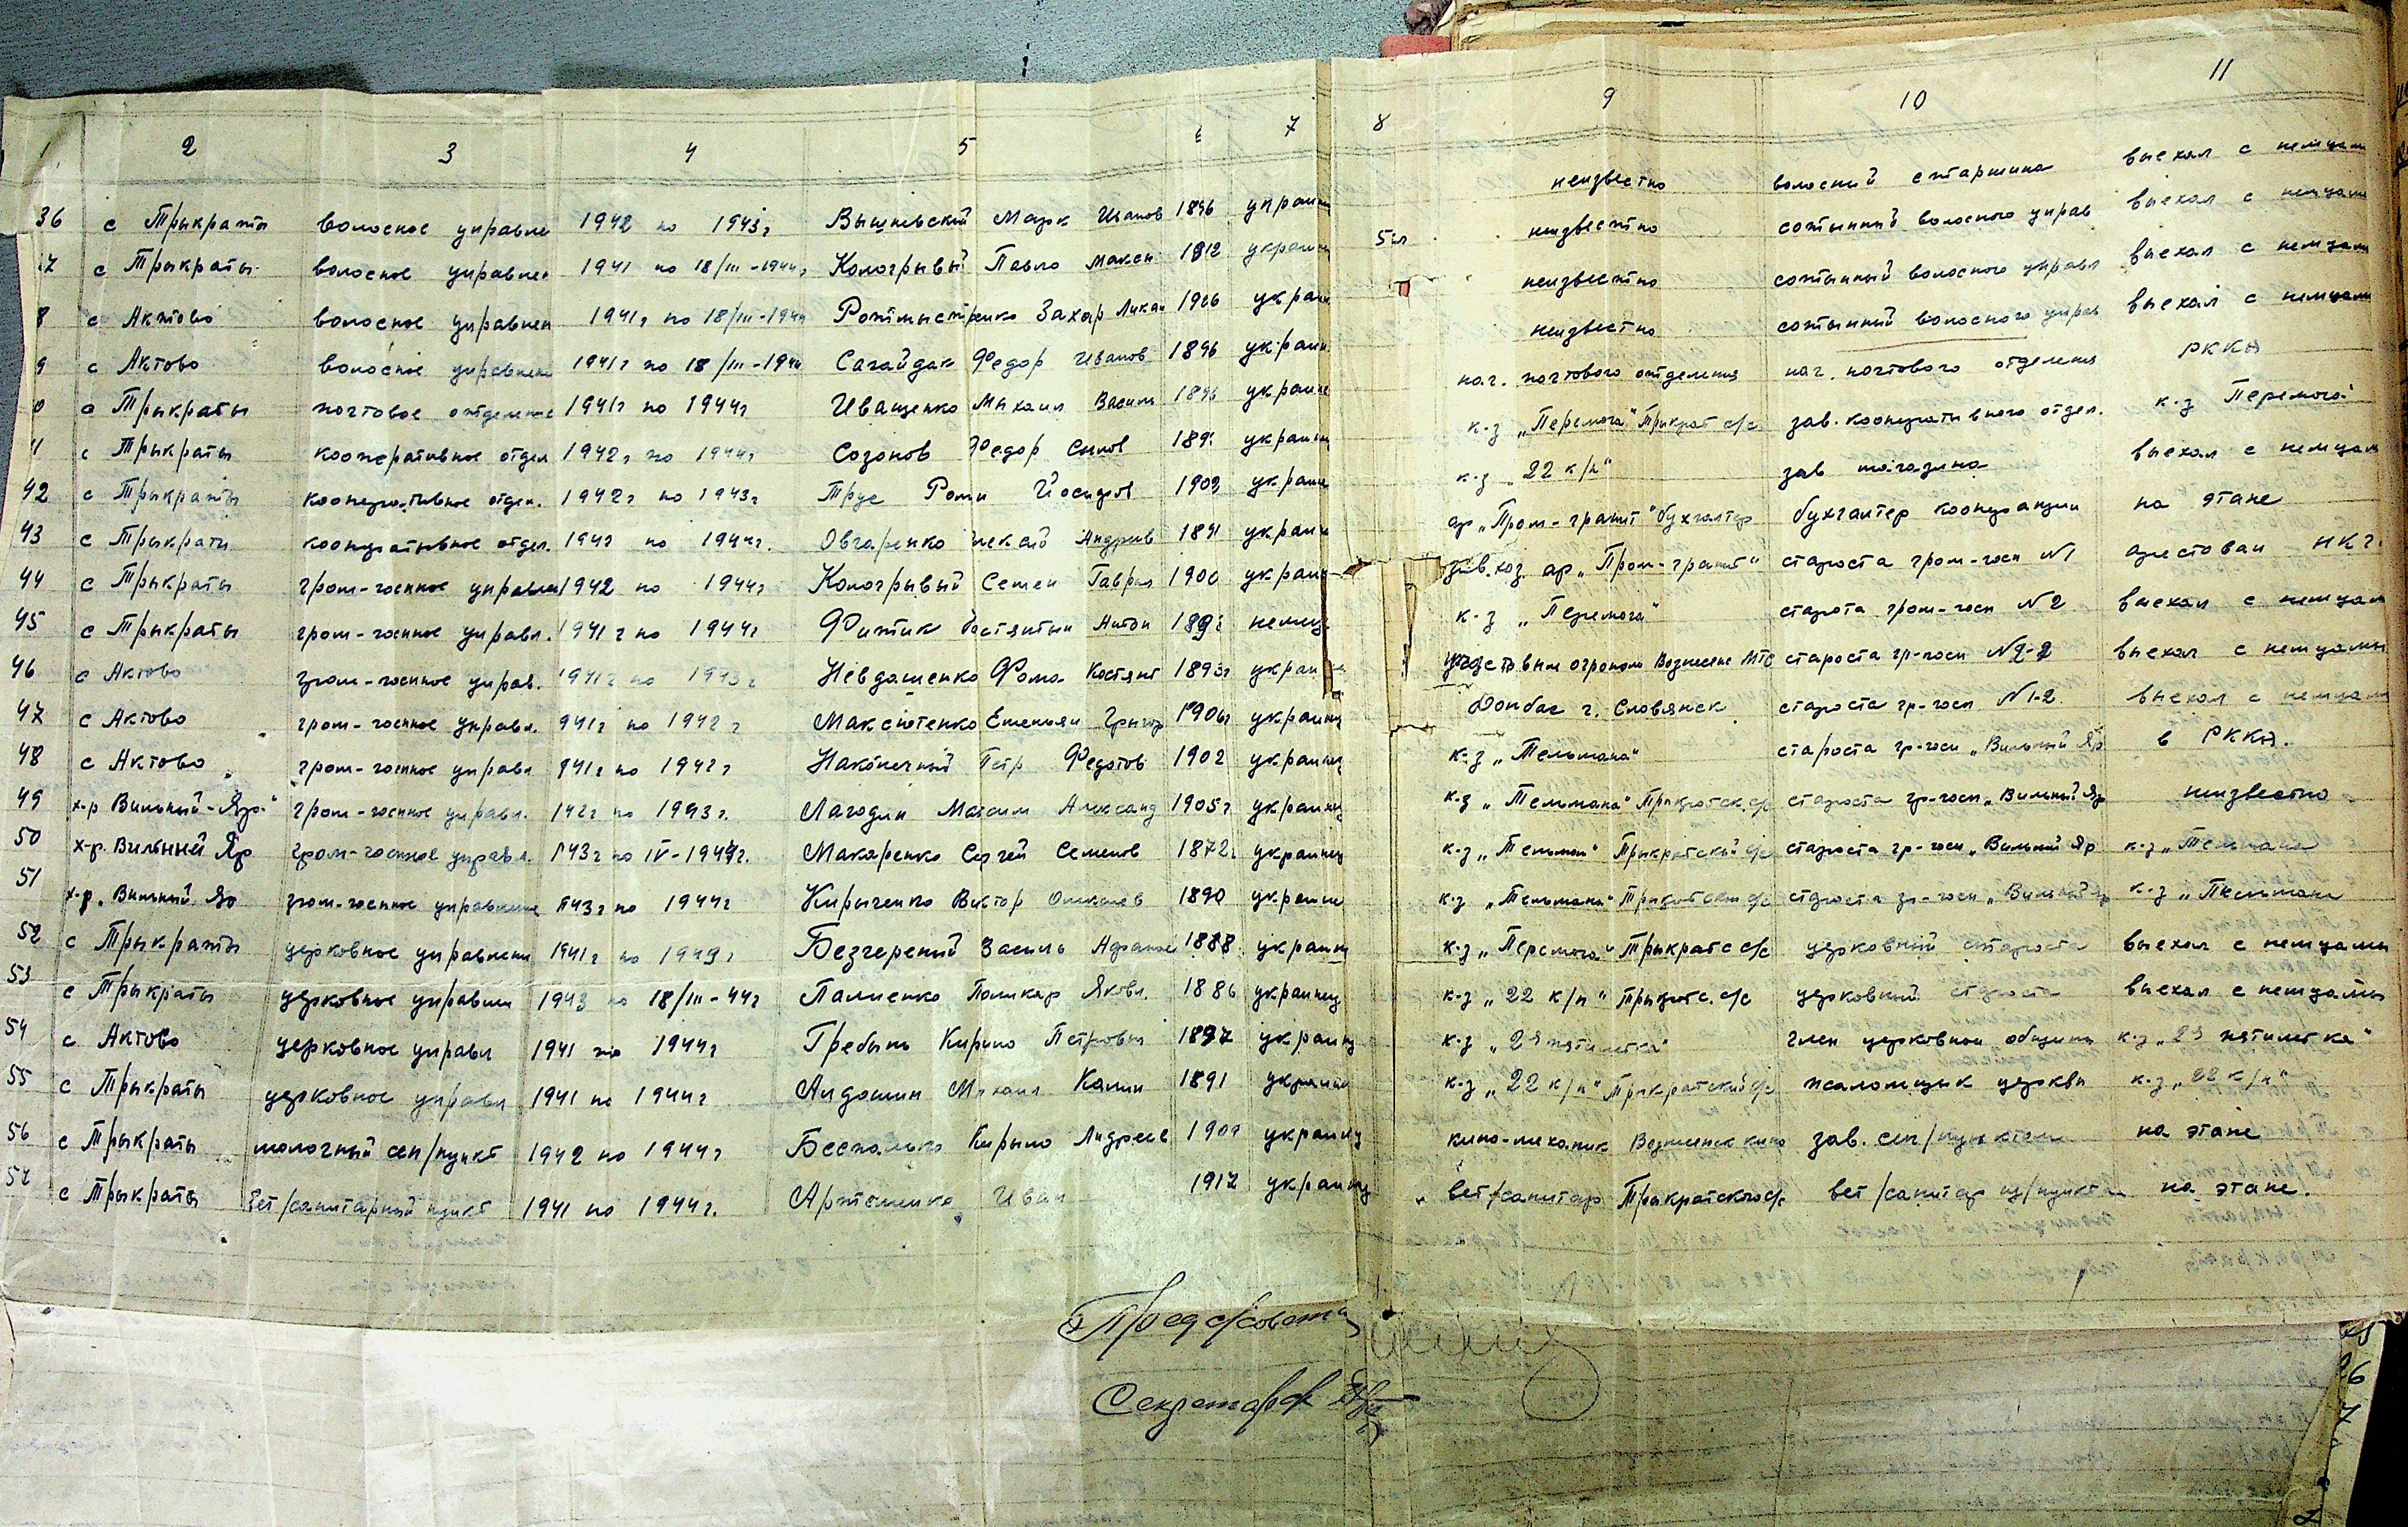 1 2 3 4 5 6 7 8 9 10 11
36 с Трыкраты волосное управле 1942 по 1943г Вышневский Марк Иванов 1896 украин неизвестно волосный старшина выехал с немцам
37 с Трыкраты волосное управлен 1941 по 18/III-1944г Кологрывый Павло Максим 1912 украин 5 кл неизвестно сотынный волосного управ выехал с немцам
8 с Актово волосное управлен 1941г по 18/III-1944 Ротмыстренко Захар 1906 украин неизвестно сотынный волосного управл выехал с немцам
9 с Актово волосное управлени 1941г по 18/III-1944 Сагайдак Федор Иванов 1896 украин неизвестно сотынный волосного управ выехал с немцам
0 с Трыкраты почтовое отделение 1941г по 1944г Иващенко Мыхаил Василь 1896 украин нач. почтового отделения нач. почтового отделения РККА
1 с Трыкраты кооперативное отдел 1942г по 1944г Созонов Федор украин к-з „Перемога" Трыкрат с/с зав. кооперативного отдел. к-з Перемога
42 с Трыкраты кооперативное отдел. 1942г по 1943г Трус Роман Йосипов 1903 украин к-з „22 к/п" зав магазина выехал с немцам
43 с Трыкраты кооперативное отдел. 194г по 1944г. Овчаренко Андреев 1891 украин ар „Пром-гранит" бухгалтер бухгалтер кооперации на этапе
44 с Трыкраты гром-госпное управлен 1942 по 1944г Кологрывый Семен Гаврил 1900 украин зав. хоз. ар „Пром-гранит" староста гром-госп N1 арестован НКГ.
45 с Трыкраты гром-госпное управл. 1941г по 1944г Фитик Антон немец. к-з „Перемога" старота гром-госп N2 выехал с немцам
46 с Актово гром-госпное управ. 1941г по 1943г Невдашенко Фома Костянт 1893г украин участовым огроном Вознесенс МТС староста гр-госп N2-2 выехал с немцамы
47 с Актово гром-госпное управл. 941г по 1942г Максютенко Емельян Грыгор 1906г украинц Донбас г. Словянск староста гр-госп N1-2 выехал с немцам
48 с Актово гром-госпное управл 941г по 1942г Наконечный Петр Федотов 1902 украинц к-з „Тельмана" староста гр-госп „Вильный Яр в РККА.
49 х-р Вильный-Яр" гром-госпное управл. 142г по 1993г. Лагодин Максим Александ 1905г украинц к-з „Тельмана" Трыкратск. с/с староста гр-госп „Вильный Яр неизвестно
50 х-р. Вильный Яр гром-госпное управл. 143г по IV-1944г. Макаренко Сергей Семенов 1872г украинц к-з „Тельман" Трыкратский с/с староста гр-госп „Вильный Яр к-з „Тельмана
51 х-р. Вильный Яр гром-госпное управление 143г по 1944г Кирыченко Виктор Олексеев 1890 украинц к-з „Тельмана" Трыкратский с/с староста гр-госп „Вильный Яр к-з „Тельмана
52 с Трыкраты церковное управлени 1941г по 1943г Безчереный Василь 1888 украинц к-з „Перемога" Трыкратс с/с церковный староста выехал с немцамы
53 с Трыкраты церковное управлен 1943 по 18/III-44г Палиенко Поликар Яковл. 1886 украинец к-з „22 к/п" Трыкратс. с/с церковный староста выехал с немцамы
54 с Актово церковное управл 1941 по 1944г Гребынь Кирило Петровы 1897 украинц к-з „2я пятилетка" член церковной общины к-з „2я пятилетка"
55 с Трыкраты церковное управл 1941 по 1944г Андошин Михаил Калин 1891 украинц к-з „22 к/п" Трыкратский с/с псаломщык церквы к-з „22 к/п"
56 с Трыкраты молочный сеп/пункт 1942 по 1944г Беспалько Кирыло Андреев украинц кино-механик Вознесенск кино зав. сеп/пунктом на этапе
57 с Трыкраты вет/санитарный пункт 1941 по 1944г. Артеменко Иван 1917 украинц вет/санитар Трыкратского с/с вет/санитар на этапе.
Пред с/совета
Секретарь
26
7